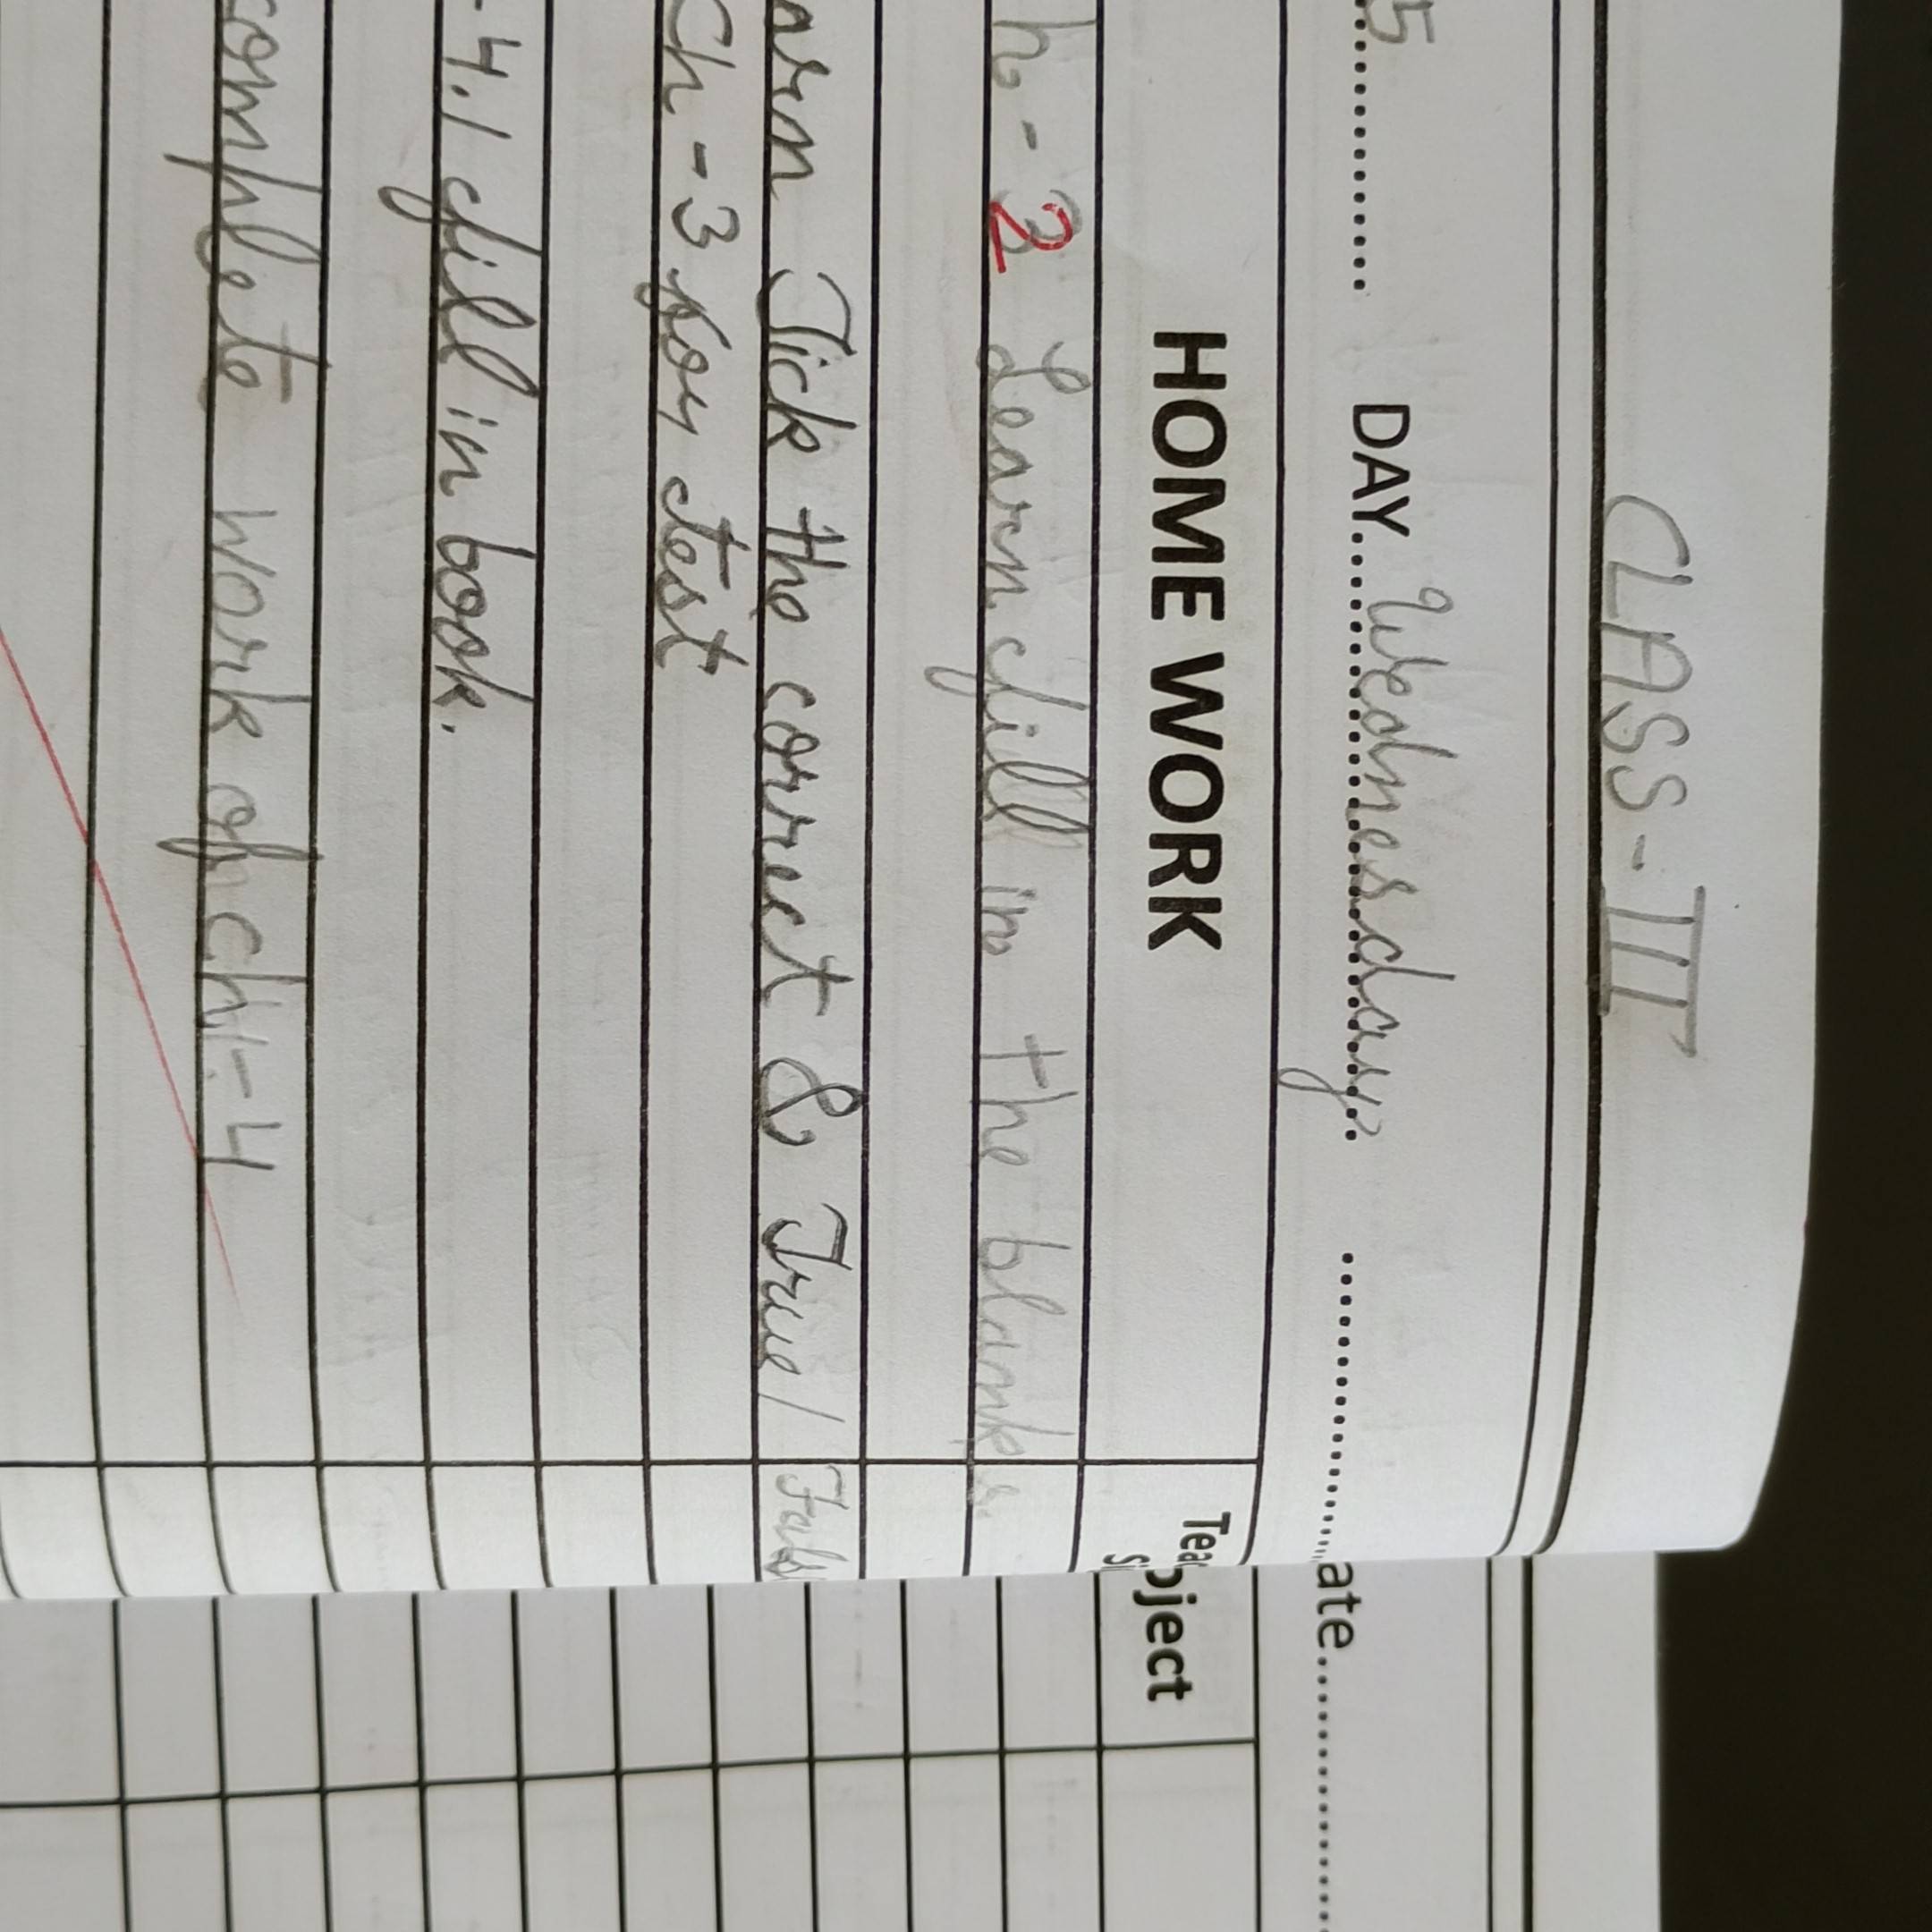 CLASS-III
5............ DAY....Wednesday....
HOME WORK
h-2 Learn fill in the blanks
arn Tick the correct & True/
Ch-3 for test
-4.1 fill in book.
complete work of ch-4
ate............
bject